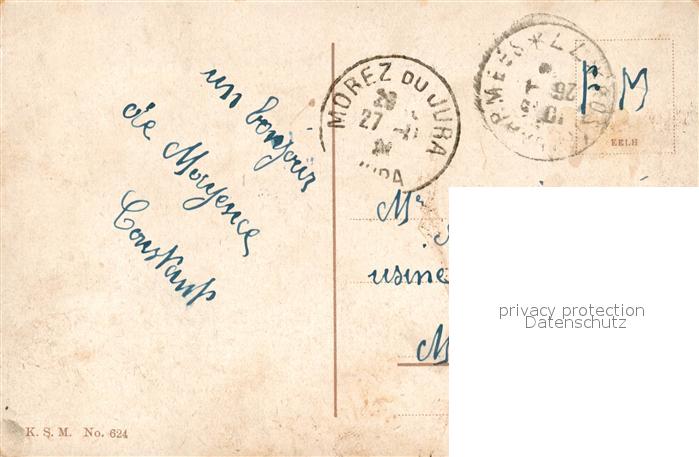 un bonjour
de Mayence
Constant
MOREZ DU JURA
27
JURA
F M
EELH
Mr
usine
M
privacy protection
Datenschutz
K. S. M. No. 624